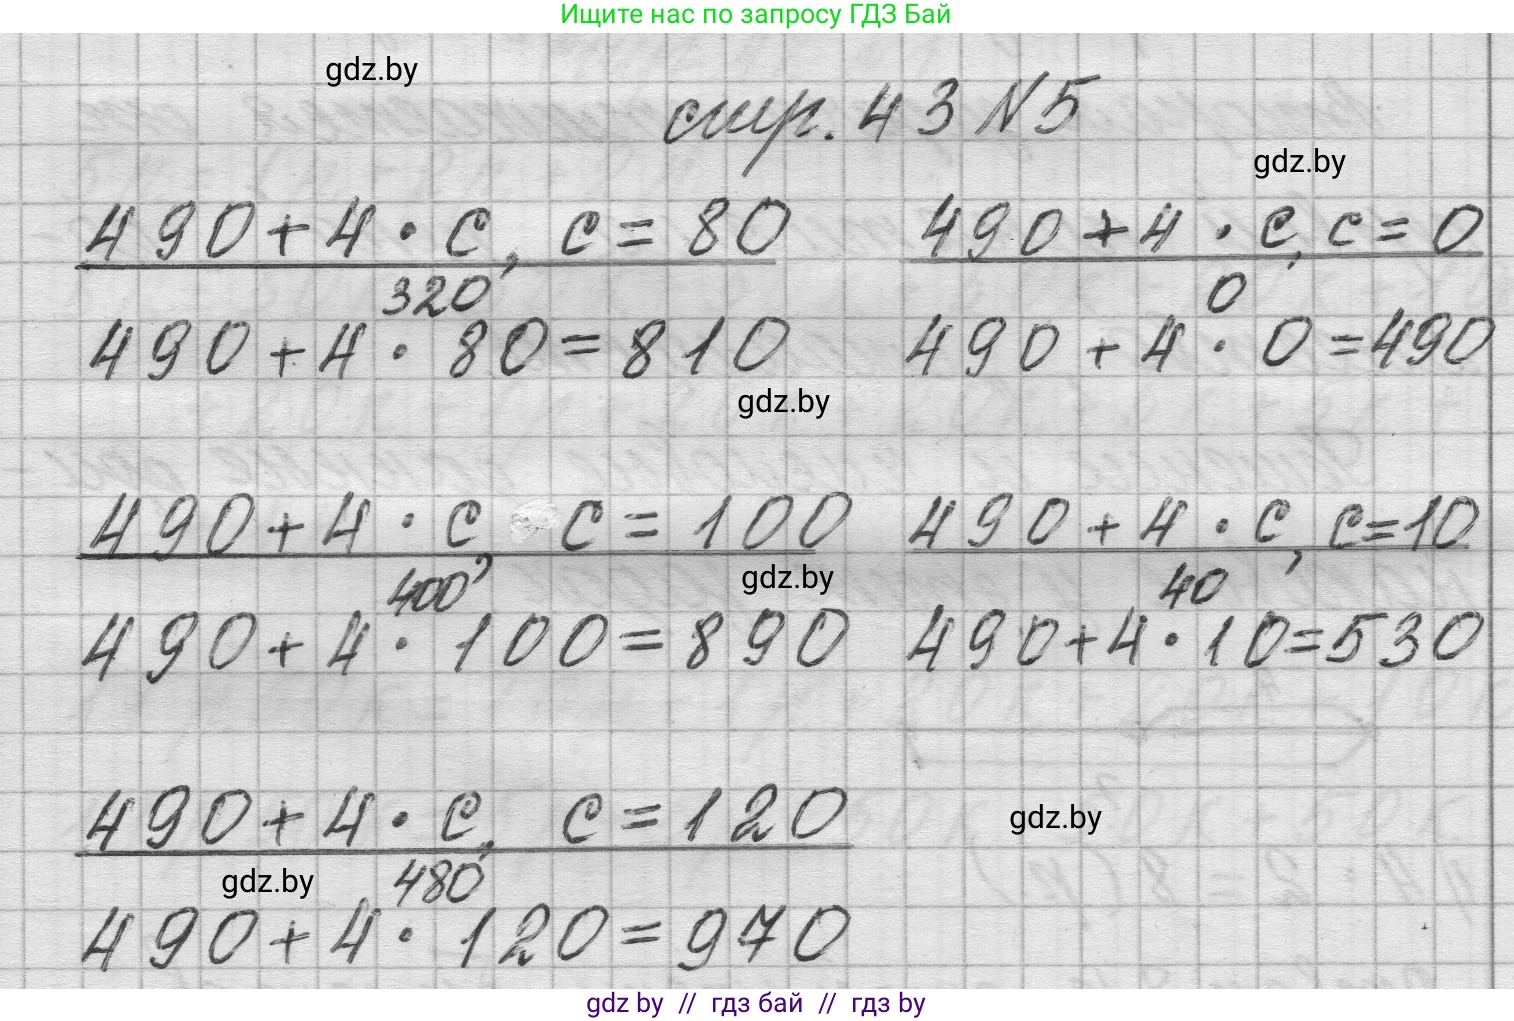 Ищите нас по запросу ГДЗ Бай
gdz.by
стр. 43 N5
gdz.by
490+4·c, c=80
490+4·c, c=0
320
0
490+4·80=810
490+4·0=490
gdz.by
490+4·c, c=100
490+4·c, c=10
400
gdz.by
40
490+4·100=890
490+4·10=530
490+4·c, c=120
gdz.by
gdz.by
480
490+4·120=970
gdz by // гдз бай // гдз by